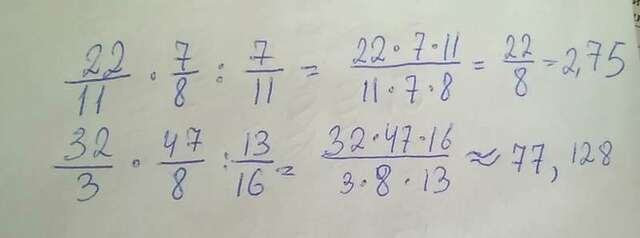 22/11 · 7/8 : 7/11 = 22·7·11/11·7·8 = 22/8 = 2,75
32/3 · 47/8 : 13/16 = 32·47·16/3·8·13 ≈ 77,128